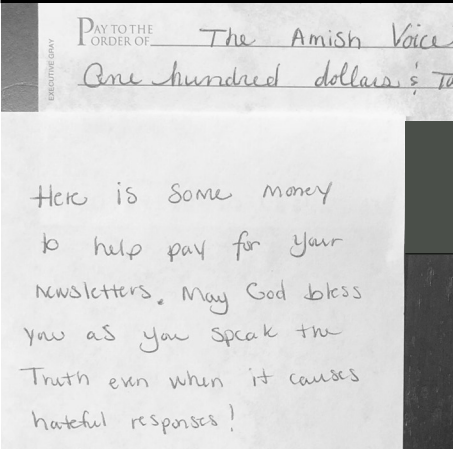 EXECUTIVE GRAY
PAY TO THE
ORDER OF The Amish Voice
One hundred dollars &
Here is some money
to help pay for your
newsletters. May God bless
you as you speak the
Truth even when it causes
hateful responses!